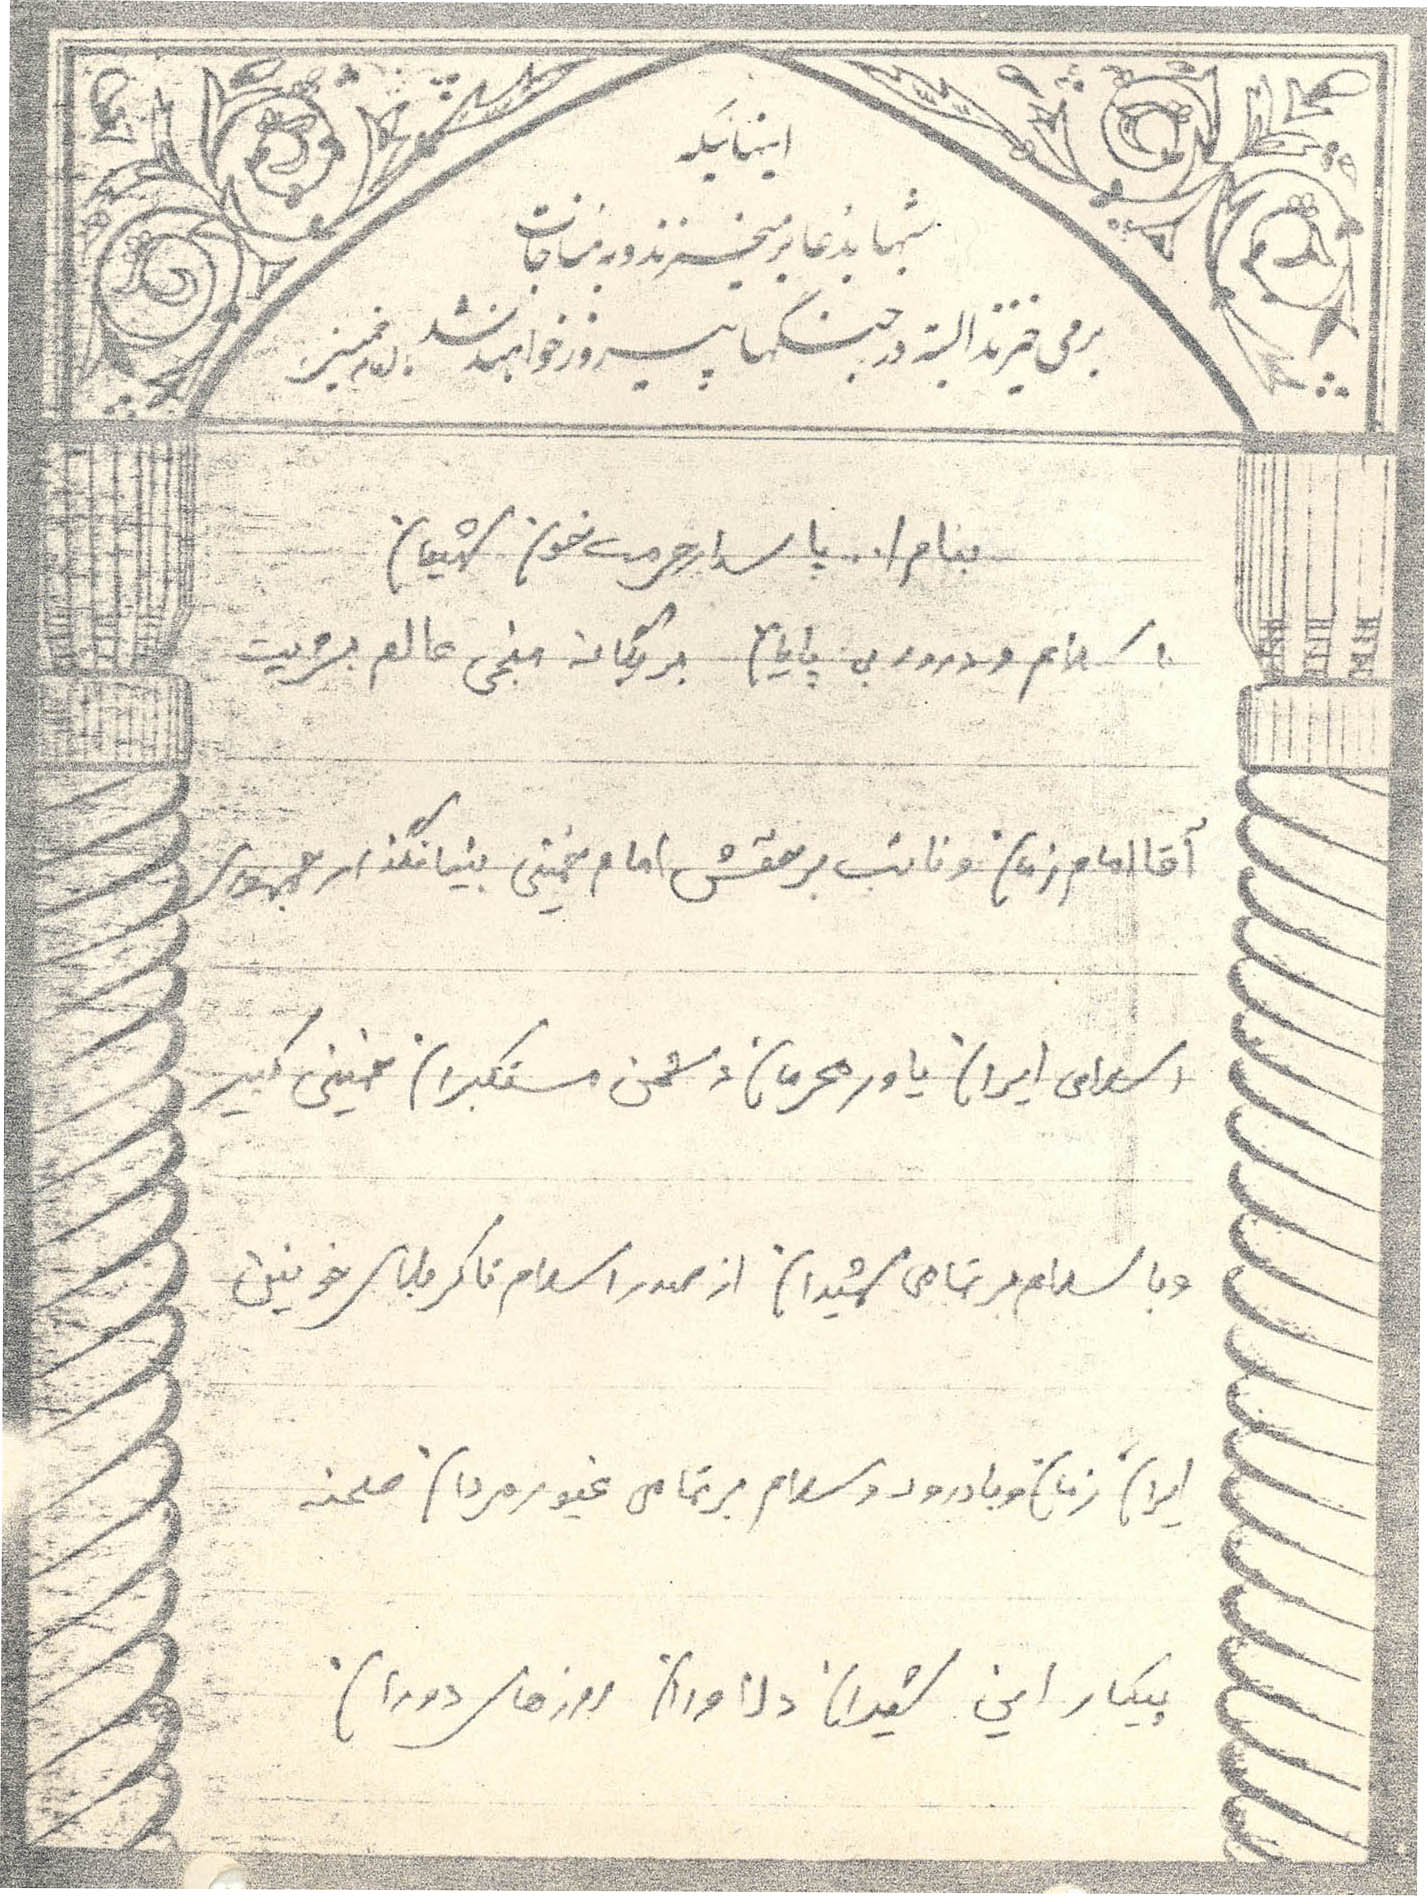 اینهائیکه
شبها بدعا برمیخیزند و به مناجات
برمی خیزند البته در جنگها پیروز خواهند شد. امام خمینی
بنام ا... پاسدار حرمت خون شهیدان
با سلام و درود بی پایان بر یگانه منجی عالم بشریت
آقا امام زمان و نائب برحقش امام خمینی بنیانگذار جمهوری
اسلامی ایران یاور محرومان دشمن مستکبران خمینی کبیر
و با سلام بر تمامی شهیدان از صدر اسلام تا کربلای خونین
ایران زمان و با درود و سلام بر تمامی غیور مردان صحنه
پیکار این شهیدان دلاوران روزهای دوران